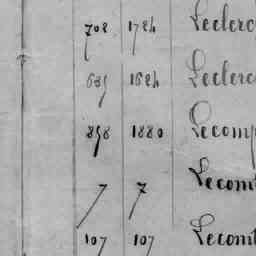 708 1784 Leclerc
685 1684 Leclerc
858 1880 Lecomp
7 7 Lecomt
107 107 Lecomt